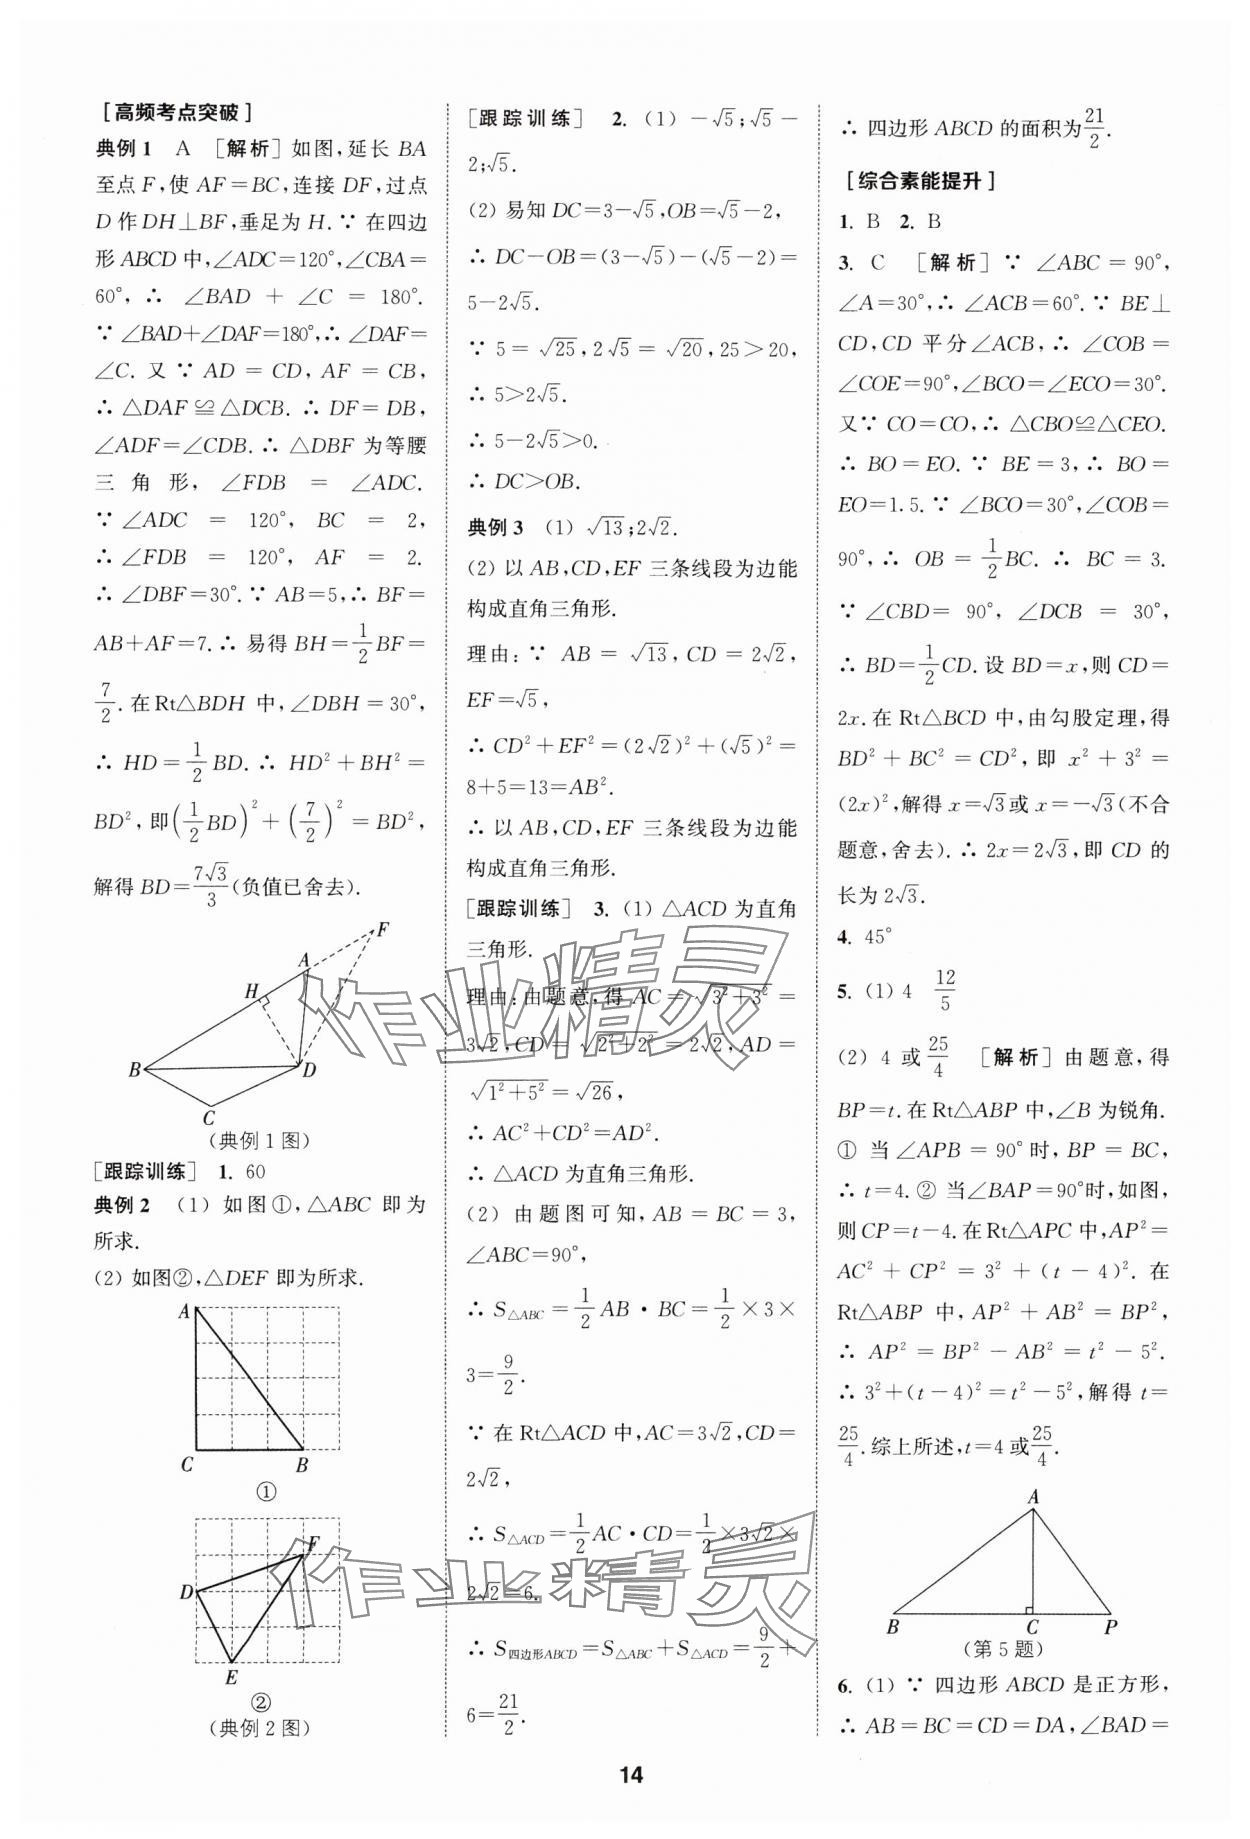 [高频考点突破]
典例1 A [解析]如图,延长 BA
至点 F,使 AF=BC,连接 DF,过点
D 作 DH⊥BF,垂足为 H.∵ 在四边
形 ABCD 中,∠ADC=120°,∠CBA=
60°,∴ ∠BAD + ∠C = 180°.
∵ ∠BAD+∠DAF=180°,∴ ∠DAF=
∠C. 又 ∵ AD = CD, AF = CB,
∴ △DAF ≌ △DCB. ∴ DF= DB,
∠ADF=∠CDB.∴ △DBF 为等腰
三角形, ∠FDB = ∠ADC.
∵ ∠ADC = 120°, BC = 2,
∴ ∠FDB = 120°, AF = 2.
∴ ∠DBF=30°.∵ AB=5,∴ BF=
AB+AF=7.∴ 易得 BH=1/2BF=
7/2.在 Rt△BDH 中,∠DBH=30°,
∴ HD=1/2BD.∴ HD²+BH²=
BD²,即(1/2BD)²+(7/2)²=BD²,
解得 BD=7√3/3(负值已舍去).
F
A
H
B
D
C
(典例1图)
[跟踪训练] 1. 60
典例2 (1) 如图①,△ABC 即为
所求.
(2) 如图②,△DEF 即为所求.
A
C
B
①
F
D
E
②
(典例2图)
[跟踪训练] 2. (1) -√5;√5-
2;√5.
(2) 易知 DC=3-√5,OB=√5-2,
∴ DC-OB=(3-√5)-(√5-2)=
5-2√5.
∵ 5=√25,2√5=√20,25>20,
∴ 5>2√5.
∴ 5-2√5>0.
∴ DC>OB.
典例3 (1) √13;2√2.
(2) 以 AB,CD,EF 三条线段为边能
构成直角三角形.
理由:∵ AB=√13,CD=2√2,
EF=√5,
∴ CD²+EF²=(2√2)²+(√5)²=
8+5=13=AB².
∴ 以 AB,CD,EF 三条线段为边能
构成直角三角形.
[跟踪训练] 3. (1) △ACD 为直角
三角形.
理由:由题意,得 AC=√3²+3²=
3√2,CD=√2²+2²=2√2,AD=
√1²+5²=√26,
∴ AC²+CD²=AD².
∴ △ACD 为直角三角形.
(2) 由题图可知,AB=BC=3,
∠ABC=90°,
∴ S△ABC=1/2AB·BC=1/2×3×
3=9/2.
∵ 在 Rt△ACD 中,AC=3√2,CD=
2√2,
∴ S△ACD=1/2AC·CD=1/2×3√2×
2√2=6.
∴ S四边形ABCD=S△ABC+S△ACD=9/2+
6=21/2.
∴ 四边形 ABCD 的面积为21/2.
[综合素能提升]
1. B 2. B
3. C [解析] ∵ ∠ABC=90°,
∠A=30°,∴ ∠ACB=60°.∵ BE⊥
CD,CD 平分∠ACB,∴ ∠COB=
∠COE=90°,∠BCO=∠ECO=30°.
又∵ CO=CO,∴ △CBO≌△CEO.
∴ BO=EO.∵ BE=3,∴ BO=
EO=1.5.∵ ∠BCO=30°,∠COB=
90°,∴ OB=1/2BC.∴ BC=3.
∵ ∠CBD=90°,∠DCB=30°,
∴ BD=1/2CD.设 BD=x,则 CD=
2x.在 Rt△BCD 中,由勾股定理,得
BD²+BC²=CD²,即 x²+3²=
(2x)²,解得 x=√3或 x=-√3(不合
题意,舍去).∴ 2x=2√3,即 CD 的
长为 2√3.
4. 45°
5. (1) 4 12/5
(2) 4 或25/4 [解析] 由题意,得
BP=t.在 Rt△ABP 中,∠B 为锐角.
① 当∠APB=90°时,BP=BC,
∴ t=4.② 当∠BAP=90°时,如图,
则 CP=t-4.在 Rt△APC 中,AP²=
AC²+CP²=3²+(t-4)².在
Rt△ABP 中,AP²+AB²=BP²,
∴ AP²=BP²-AB²=t²-5².
∴ 3²+(t-4)²=t²-5²,解得 t=
25/4.综上所述,t=4 或25/4.
A
B
C
P
(第5题)
6. (1) ∵ 四边形 ABCD 是正方形,
∴ AB=BC=CD=DA,∠BAD=
作业精灵
作业精灵
14